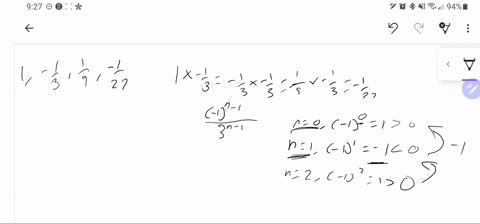 9:27
94%
1, -1/3, 1/9, -1/27
1 × -1/3 = -1/3 × -1/3 = 1/9 × -1/3 = -1/27
(-1)^(n-1) / 3^(n-1)
n=0, (-1)^0 = 1 > 0
n=1, (-1)^1 = -1 < 0
-1
n=2, (-1)^2 = 1 > 0